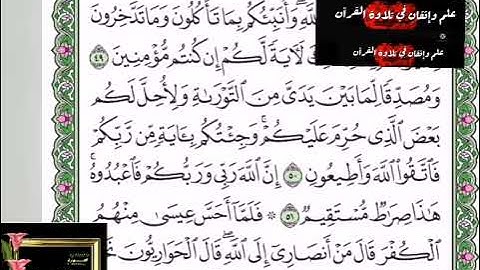 علم وإتقان في تلاوة القرآن
علم وإتقان في تلاوة القرآن
وَأُنَبِّئُكُم بِمَا تَأْكُلُونَ وَمَا تَدَّخِرُونَ
لَأٓيَةً لَّكُمْ إِن كُنتُم مُّؤْمِنِينَ ٤٩
وَمُصَدِّقًا لِّمَا بَيْنَ يَدَىَّ مِنَ ٱلتَّوْرَىٰةِ وَلِأُحِلَّ لَكُم
بَعْضَ ٱلَّذِى حُرِّمَ عَلَيْكُمْ ۚ وَجِئْتُكُم بِـَٔايَةٍ مِّن رَّبِّكُمْ
فَٱتَّقُوا۟ ٱللَّهَ وَأَطِيعُونِ ٥٠ إِنَّ ٱللَّهَ رَبِّى وَرَبُّكُمْ فَٱعْبُدُوهُ ۗ
هَـٰذَا صِرَٰطٌ مُّسْتَقِيمٌ ٥١ ۞ فَلَمَّآ أَحَسَّ عِيسَىٰ مِنْهُمُ
ٱلْكُفْرَ قَالَ مَنْ أَنصَارِىٓ إِلَى ٱللَّهِ ۖ قَالَ ٱلْحَوَارِيُّونَ